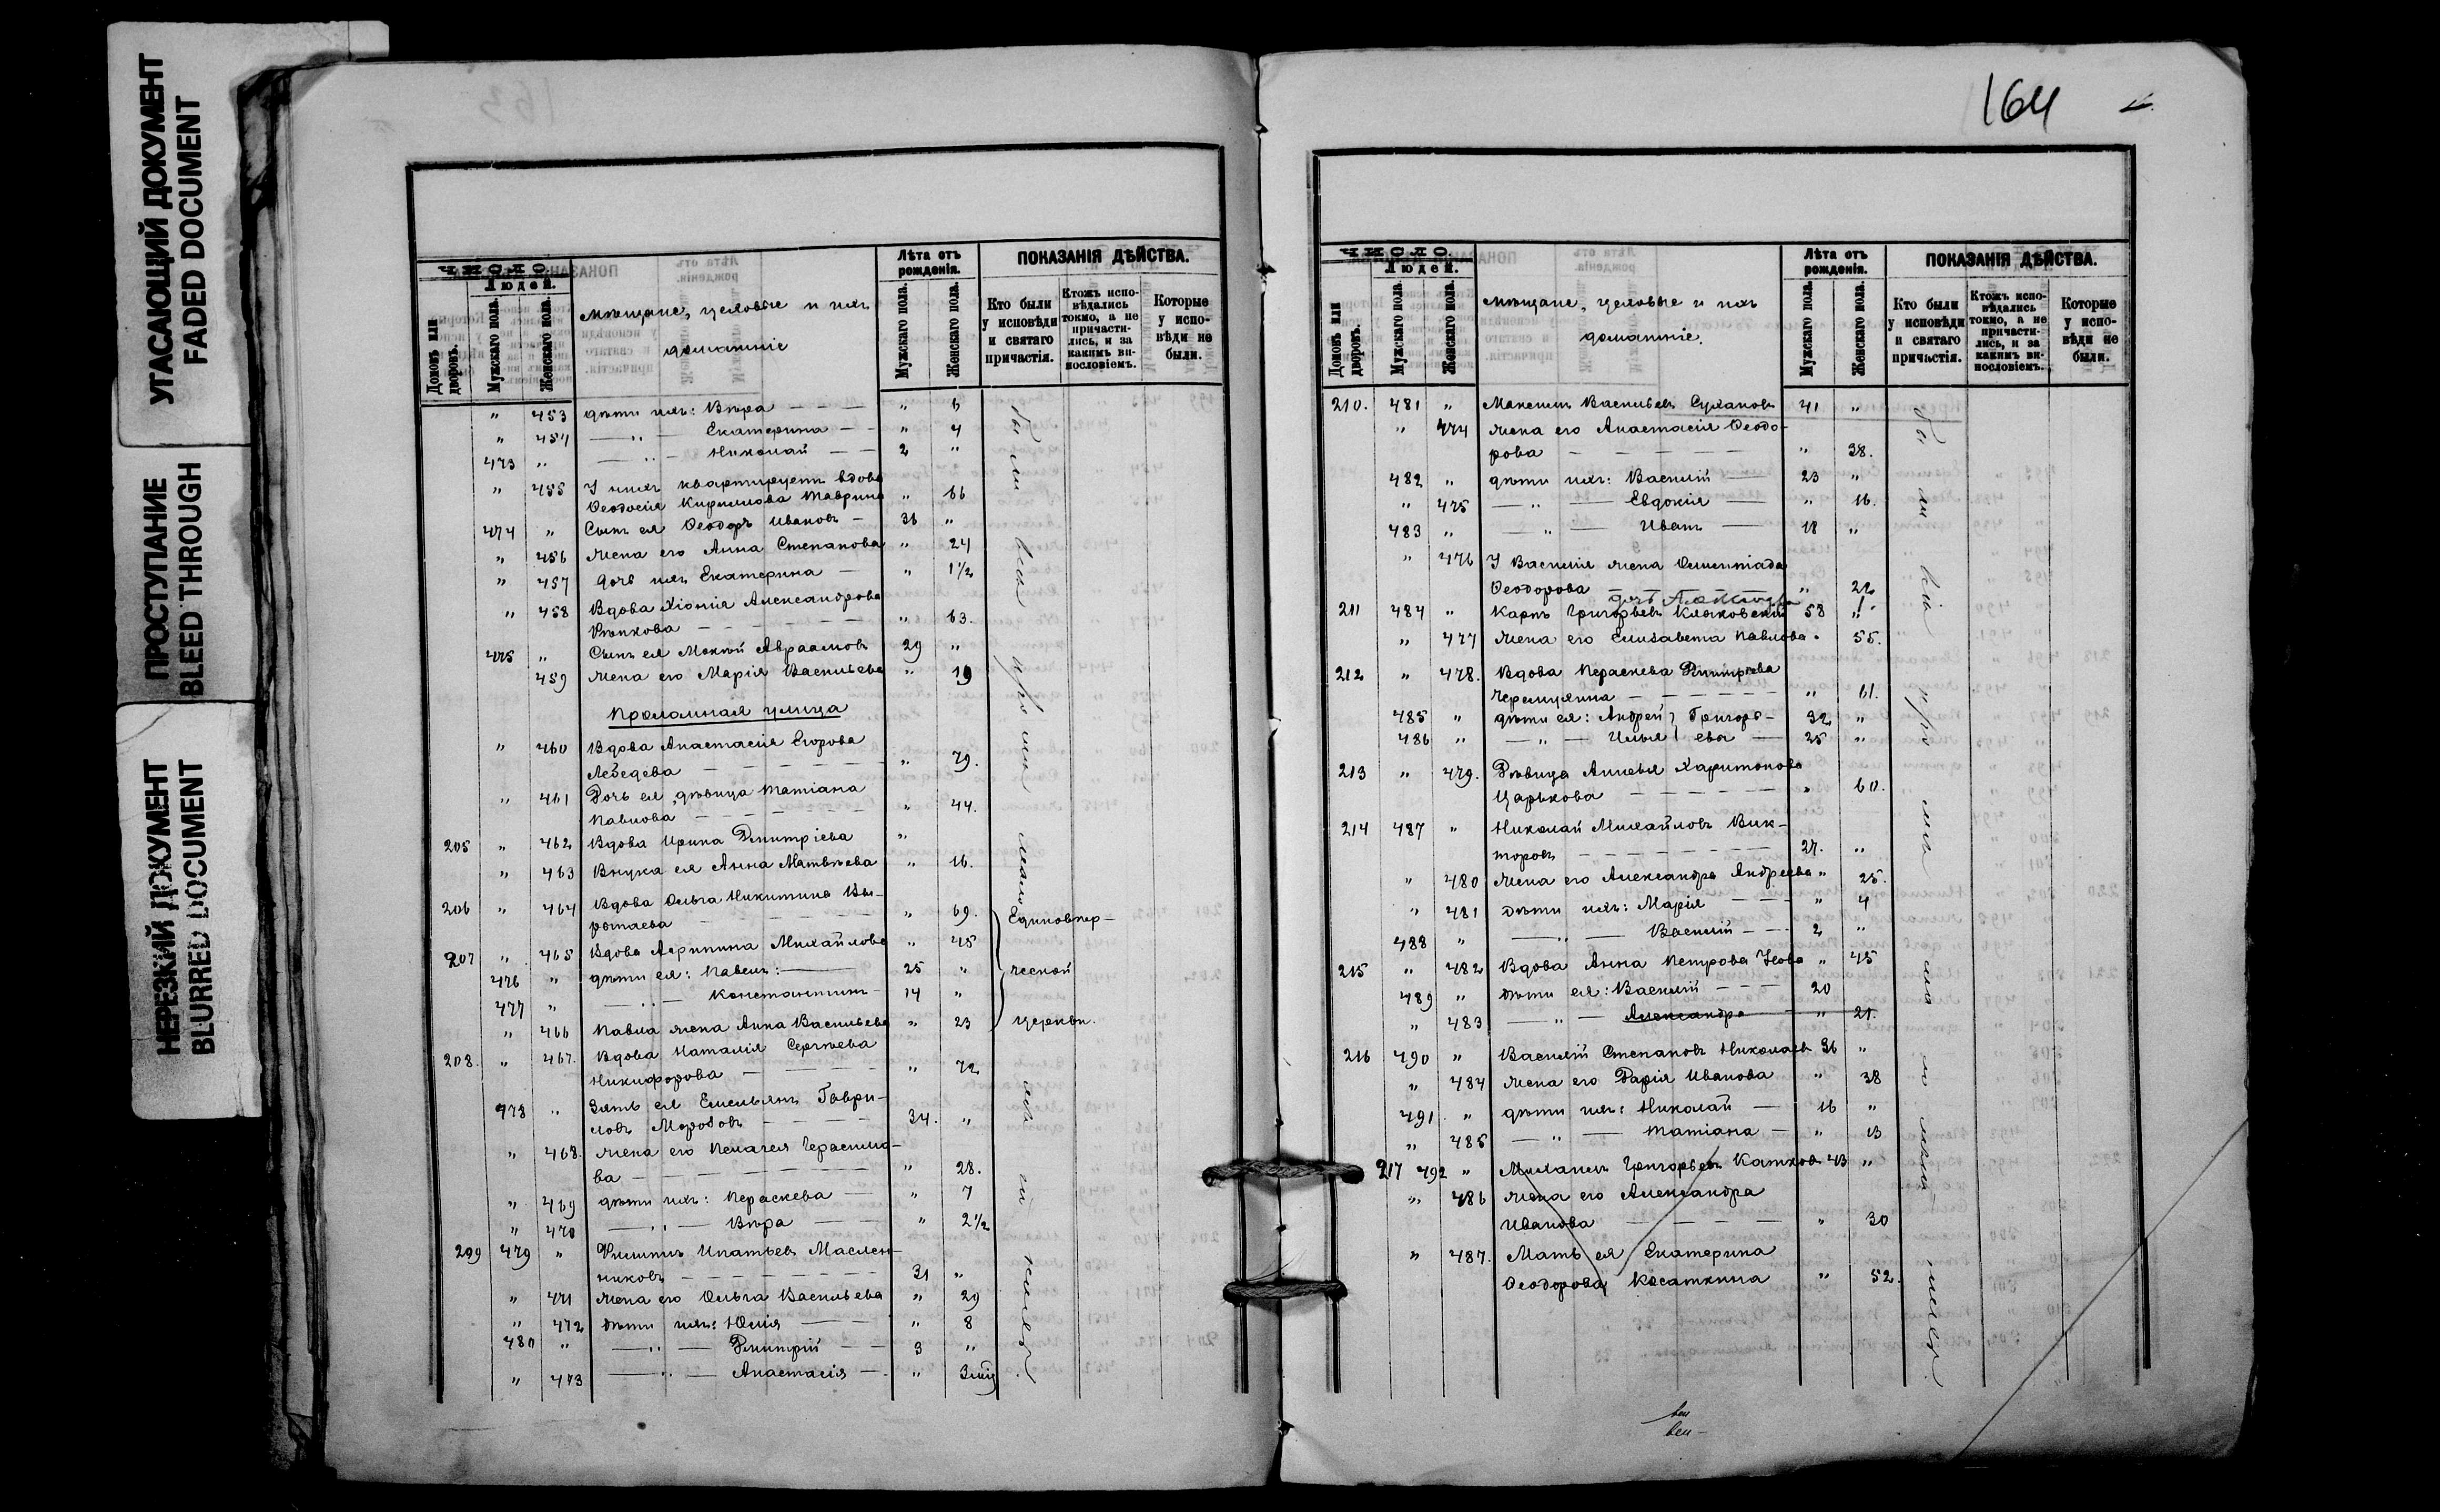 УГАСАЮЩИЙ ДОКУМЕНТ
FADED DOCUMENT
ПРОСТУПАНИЕ
BLEED THROUGH
НЕРЕЗКИЙ ДОКУМЕНТ
BLURRED DOCUMENT
ЧИСЛО.
Людей.
Домовъ или дворовъ.
Мужскаго пола.
Женскаго пола.
мѣщане, цеховые и ихъ
домашніе
Лѣта отъ рожденія.
Мужскаго пола.
Женскаго пола.
ПОКАЗАНІЯ ДѢЙСТВА.
Кто были у исповѣди и святаго причастія.
Ктожъ исповѣдались токмо, а не причастились, и за какимъ винословіемъ.
Которые у исповѣди не были.
" 453 дѣти ихъ: Вѣра — " 6
" 454 — " — Екатерина — " 4
473 " — " — Николай — 2 "
" 455 У нихъ квартируетъ вдова
Ѳеодосія Кириллова " 66
474 " Сынъ ея Ѳеодоръ Ивановъ — 36 "
" 456 жена его Анна Степанова " 24
" 457 дочь ихъ Екатерина — " 1½
" 458 Вдова Хіонія Александрова
Рѣпкова — " 63.
475 " Сынъ ея Мокій Авраамовъ 29 "
459 жена его Марія Васильева " 19
Проломная улица
" 460 Вдова Анастасія Егорова
Лебедева — " 79.
" 461 Дочь ея, дѣвица Татіана
Павлова — " 44.
205 " 462 Вдова Ирина Димитріева "
" 463 Внука ея Анна Матвѣева " 16.
206 " 464 Вдова Ольга Никитина Вы-
рыпаева — " 69.
Единовѣр-
207 " 465 Вдова Агрипина Михайлова " 45
476 " дѣти ея: Павелъ: — 25 "
ческой
477 " — " — Константинъ — 14 "
" 466 Павла жена Анна Васильева " 23
церкви.
208. " 467. Вдова Наталія Сергѣева
Никифорова — " 72
478 " Зять ея Емельянъ Гаври-
ловъ Морозовъ — 34. "
" 468. жена его Пелагея Герасимо-
ва — " 28.
" 469 дѣти ихъ: Параскева — " 7
" 470 — " — Вѣра — " 2½
209 479 " Филиппъ Ипатьевъ Маслен-
никовъ — 31 "
" 471 жена его Ольга Васильева " 29
" 472 дѣти ихъ: Юлія — " 8
480 " — " — Димитрій — 3 "
" 473 — " — Анастасія — "
164
ЧИСЛО.
Людей.
Домовъ или дворовъ.
Мужскаго пола.
Женскаго пола.
мѣщане, цеховые и ихъ
домашніе.
Лѣта отъ рожденія.
Мужскаго пола.
Женскаго пола.
ПОКАЗАНІЯ ДѢЙСТВА.
Кто были у исповѣди и святаго причастія.
Ктожъ исповѣдались токмо, а не причастились, и за какимъ винословіемъ.
Которые у исповѣди не были.
210. 481 " Максимъ Васильевъ Сухановъ 41 "
" 474 жена его Анастасія Ѳеодо-
рова — " 38.
482 " дѣти ихъ: Василій — 23 "
" 475 — " — Евдокія — " 16.
483 " — " — Иванъ — 18 "
" 476 У Василія жена Олимпіада
Ѳеодорова — " 22
дочь 1.
211 484 " Карпъ Григорьевъ Кляковскій 58 "
" 477 жена его Елизавета Павлова " 55.
212 " 478. Вдова Параскева Димитріева
Черемухина — " 61.
485 " дѣти ея: Андрей Григорь- 32 "
486 " — " — Илья евы — 25 "
213 " 479. Дѣвица Харитонова
Царькова — " 60.
214 487 " Николай Михайловъ Вик-
торовъ — 27. "
" 480 жена его Александра Андреева " 25.
" 481 дѣти ихъ: Марія — " 4
488 " — " — Василій — 2 "
215 " 482 Вдова Анна Петрова " 45
489 " дѣти ея: Василій — 20
" 483 — " — Александра — " 21.
216 490 " Василій Степановъ Николаевъ 36 "
" 484 жена его Дарія Иванова " 38
491 " дѣти ихъ: Николай — 16 "
" 485 — " — Татіана — " 13
217 492 " Михаилъ Григорьевъ Катковъ 43 "
" 486 жена его Александра
Иванова — " 30
" 487. Мать ея Екатерина
Ѳеодорова Косаткина " 52.